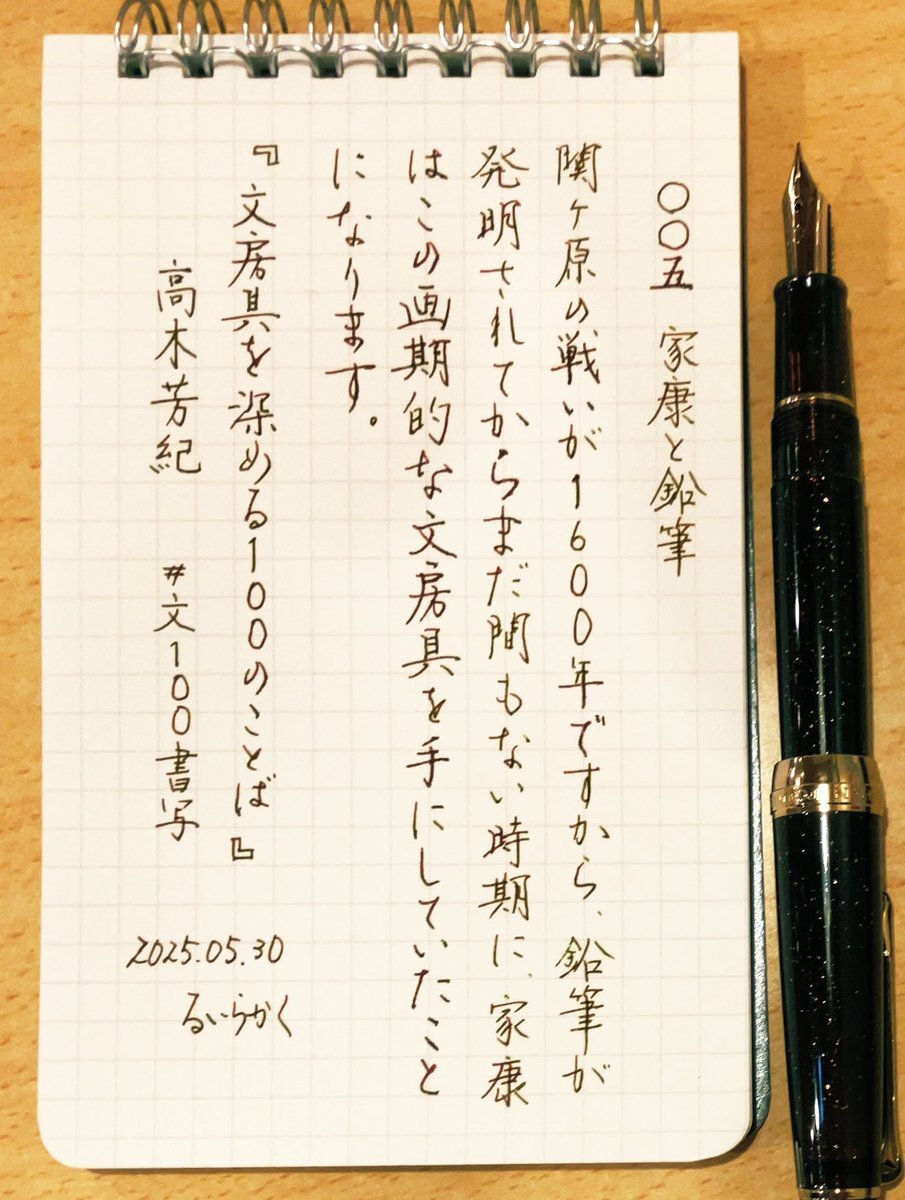 〇〇五 家康と鉛筆
関ヶ原の戦いが1600年ですから、鉛筆が
発明されてからまだ間もない時期に、家康
はこの画期的な文房具を手にしていたこと
になります。
『文房具を深める100のことば』
高木芳紀 #文100書写
2025.05.30
るいらかく